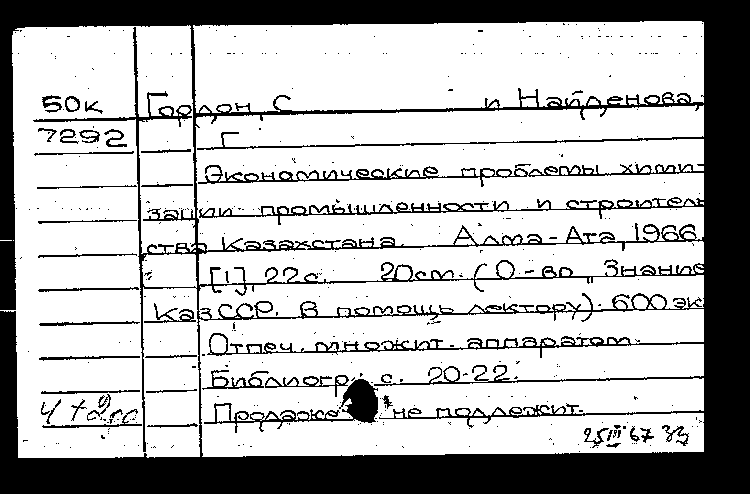 50к Гордон, С и Найденова,
7292 Г
Экономические проблемы хими-
зации промышленности и строитель
ства Казахстана. Алма-Ата, 1966.
[1], 22с. 20см. (О-во „Знание
КазССР. В помощь лектору). 600 эк
Отпеч. множит. аппаратом.
Библиогр.: с. 20-22.
Продаже не подлежит.
25 III 67